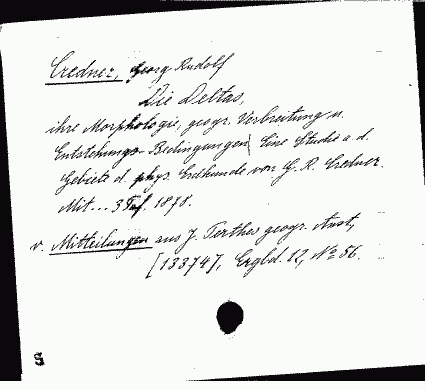 Credner, Georg Rudolf
Die Deltas,
ihre Morphologie, geogr. Verbreitung u.
Entstehungs-Bedingungen. Eine Studie a. d.
Gebiete d. phys. Erdkunde von G. R. Credner.
Mit... 3 Taf. 1878.
v. Mitteilungen aus J. Perthes geogr. Anst,
[13374], Ergbd. 12, № 56.
S